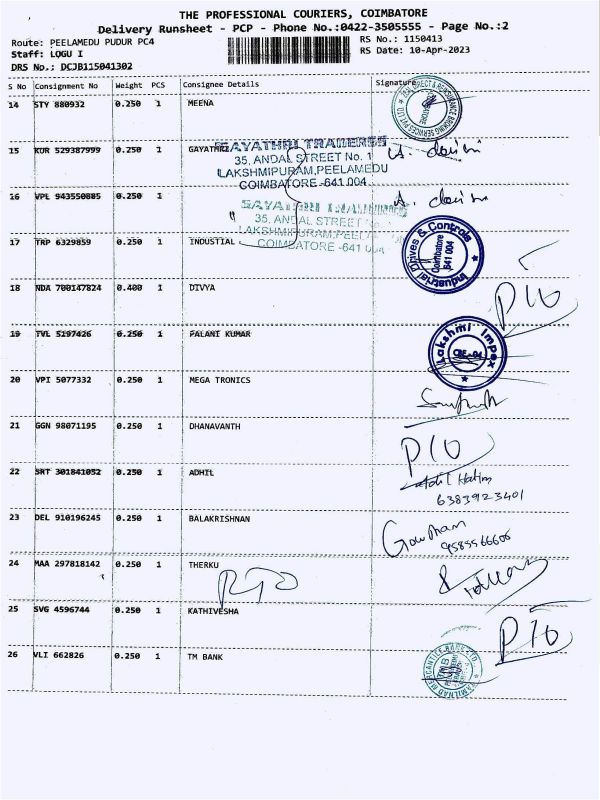 THE PROFESSIONAL COURIERS, COIMBATORE
Delivery Runsheet - PCP - Phone No.:0422-3505555 - Page No.:2
Route: PEELAMEDU PUDUR PC4
Staff: LOGU I
DRS No.: DCJB115041302
RS No.: 1150413
RS Date: 10-Apr-2023
S No Consignment No Weight PCS Consignee Details Signature
14 STY 880932 0.250 1 MEENA
15 KUR 529387999 0.250 1 GAYATHRI
GAYATHRI TRADERSS
35, ANDAL STREET No. 1
LAKSHMIPURAM,PEELAMEDU
COIMBATORE -641 004
16 VPL 943550885 0.250 1 "
35, ANDAL STREET No
COIMBATORE -641
17 TRP 6329859 0.250 1 INDUSTIAL
Industrial Drives & Controls
Coimbatore
641 004
18 NDA 700147824 0.400 1 DIVYA
P10
19 TVL 5197426 0.250 1 PALANI KUMAR
Lakshmi Impex
CBE-04
20 VPI 5077332 0.250 1 MEGA TRONICS
21 GGN 98071195 0.250 1 DHANAVANTH
P10
22 SRT 301841052 0.250 1 ADHIL
Adil Hatim
6383923401
23 DEL 910196245 0.250 1 BALAKRISHNAN
Gowtham
9585566606
24 MAA 297818142 0.250 1 THERKU
RTO
25 SVG 4596744 0.250 1 KATHIVESHA
P10
26 VLI 662826 0.250 1 TM BANK